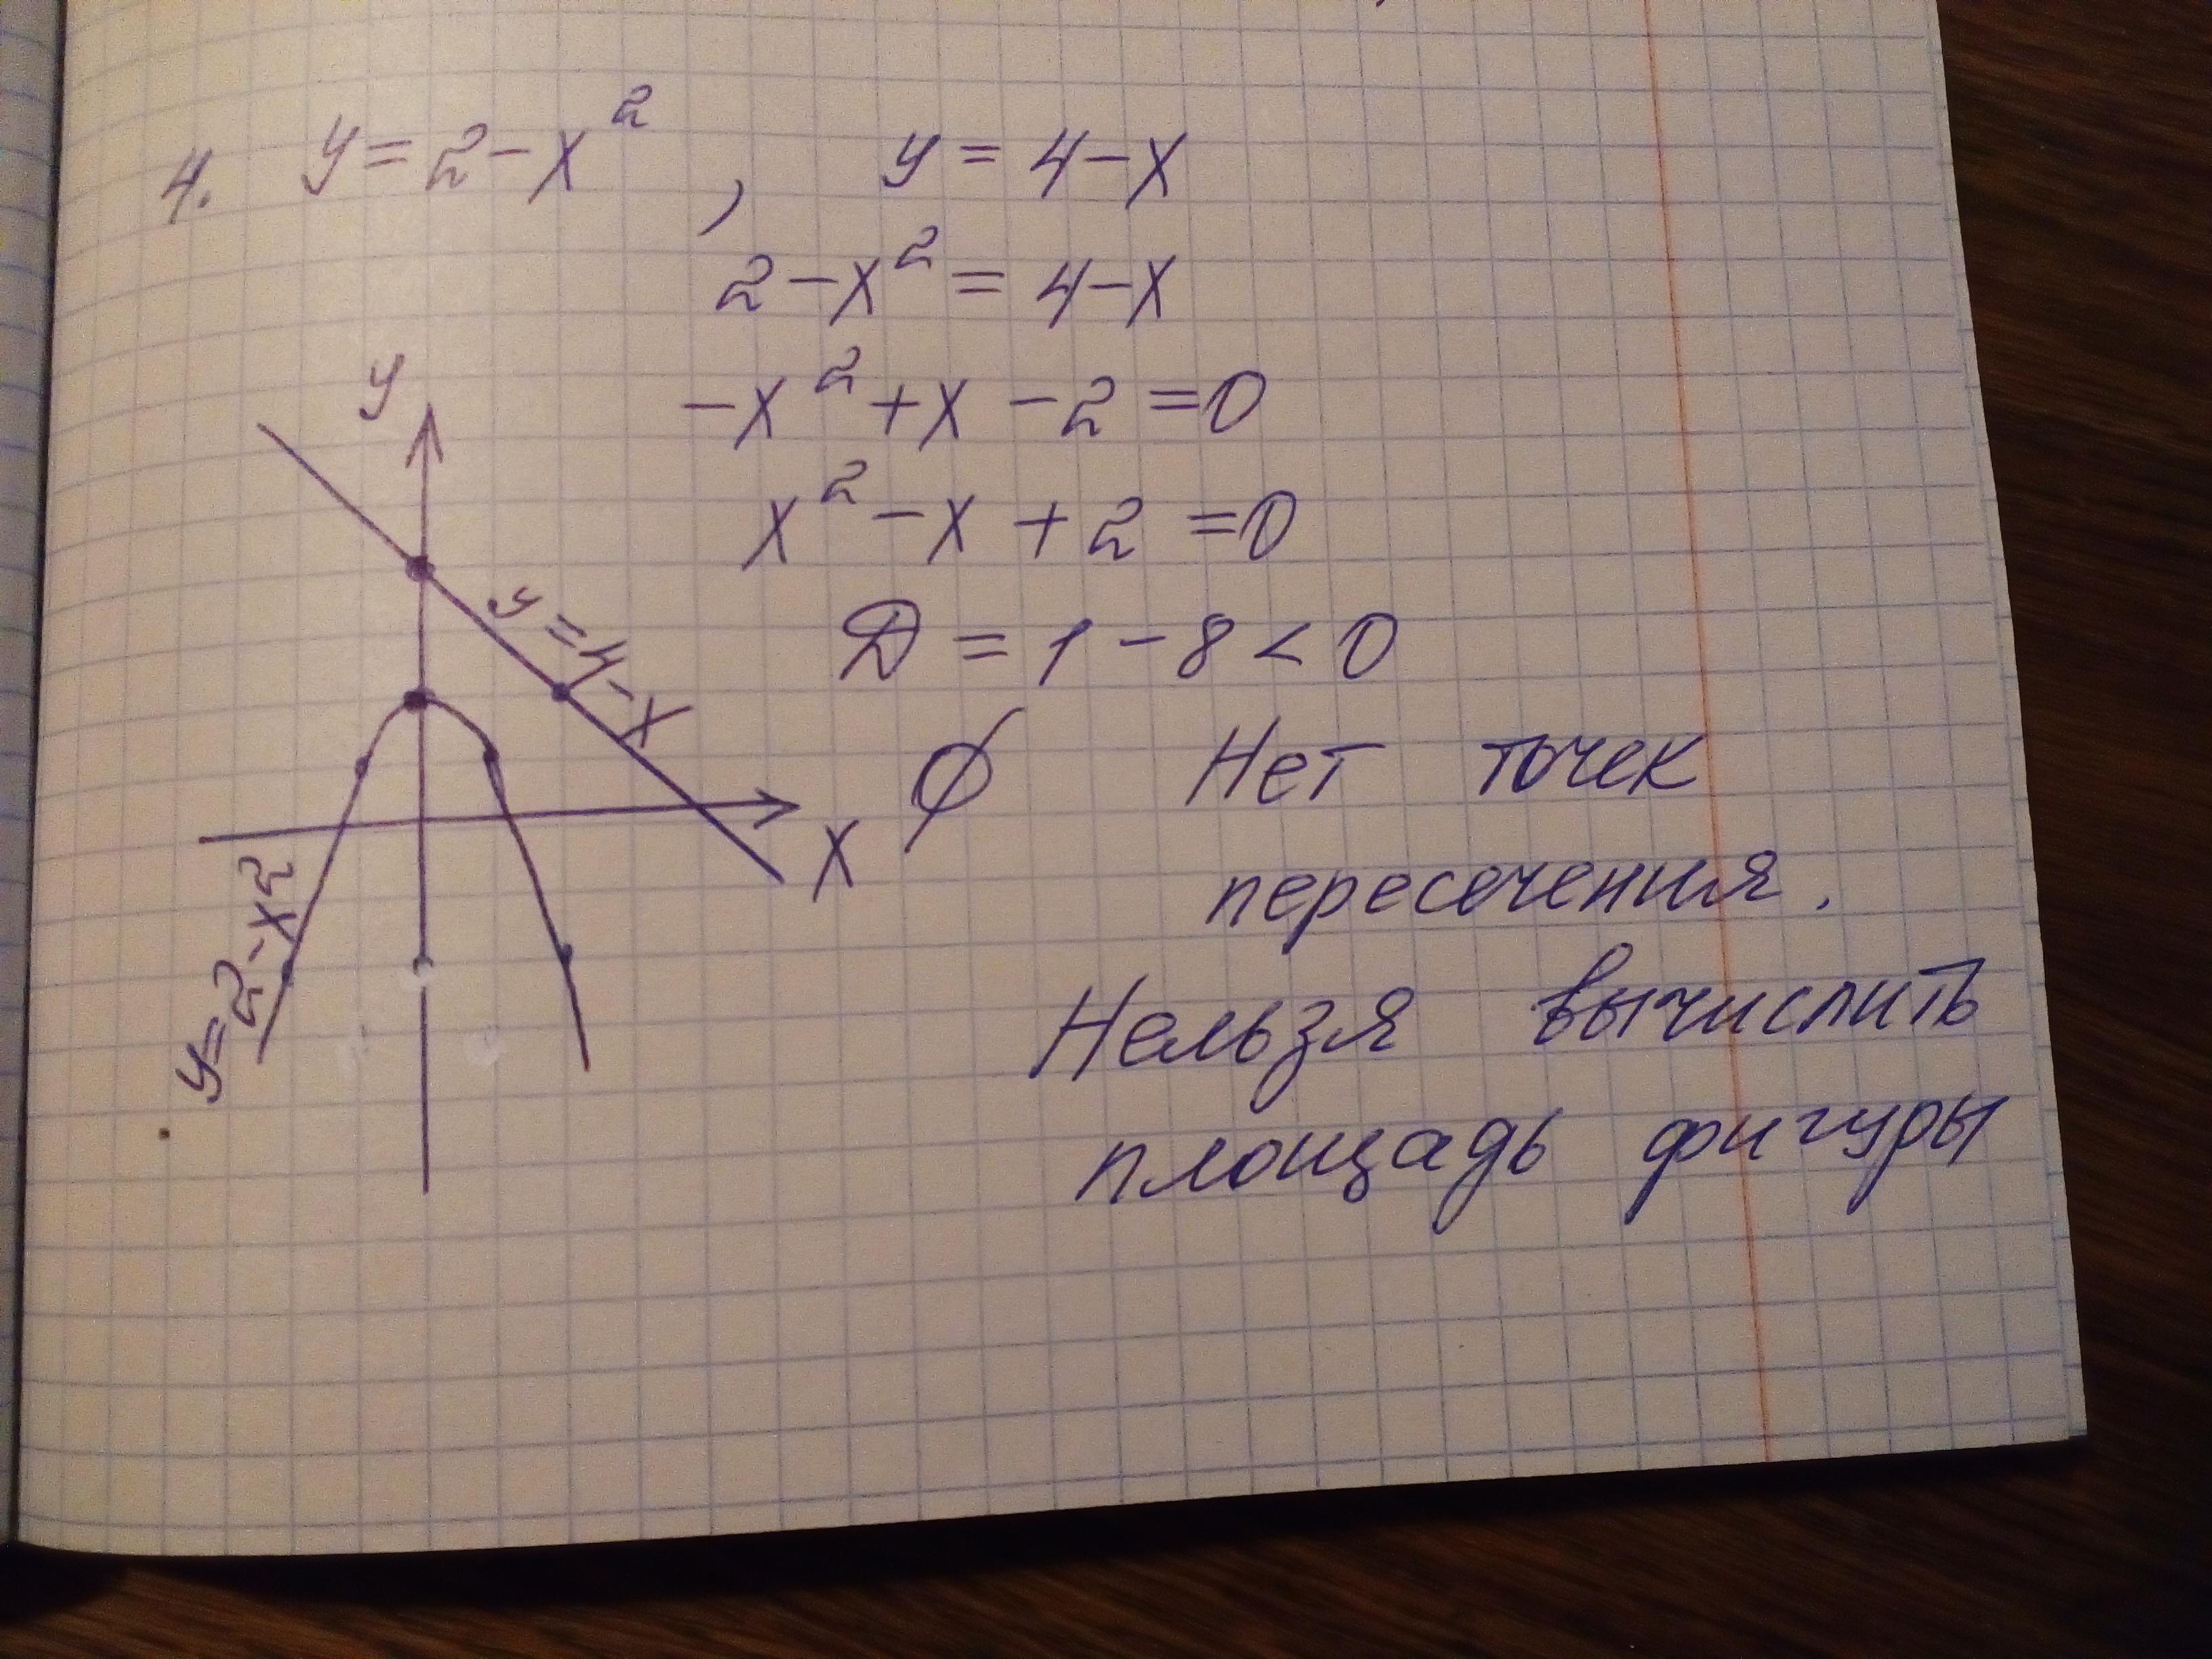 4. y = 2 - x² , y = 4 - x
2 - x² = 4 - x
- x² + x - 2 = 0
x² - x + 2 = 0
D = 1 - 8 < 0
∅ Нет точек
пересечения.
Нельзя вычислить
площадь фигуры
y
y = 4 - x
x
y = 2 - x²